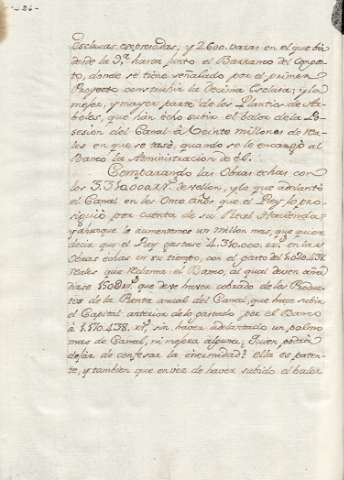 -26-
Esclusas expresadas; y 2600. varas en el que hai
desde la 9.ª hasta junto el Barranco del
donde se tiene señalado por el primer
Proyecto construhir la Decima Esclusa; y la
mejor, y mayor parte de los Plantios de Ar-
boles, que han écho subir el balor de la Po-
sesion del Canal â Veinte millones de Rea-
les en que se tasó, quando se le encargó al
Banco la Administracion de él.
Comparando las Obras echas con
los 3.310.000 r.ˢ de vellon, y lo que adelantó
el Canal en los Once años que el Rey lo pro-
siguió por cuenta de su Real Hacienda
y aunque le aumentemos un millon mas, que quiere
decir que el Rey gastase 4.310.000. r.ˢ en las
Obras echas en su tiempo, con el gasto del
reales que Reclama el Banco, al qual deven añad-
dirse que deve haver cobrado de los Produc-
tos de la Renta anual del Canal, que hace subir
el Capital anterior de lo gastado por el Banco
â sin haver adelantado un palmo
mas de Canal, ni mejora alguna; Quien podrá
dejar de confesar la enormidad? ella es paten-
te, y tambien que en vez de haver subido el balor